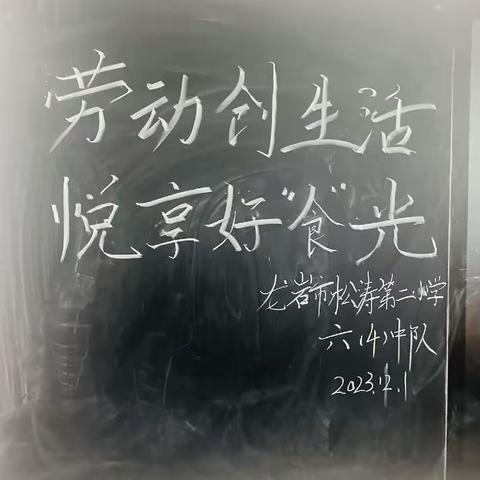 劳动创生活
悦享好“食”光
龙岩市松涛第二小学
六(4)中队
2023.12.1